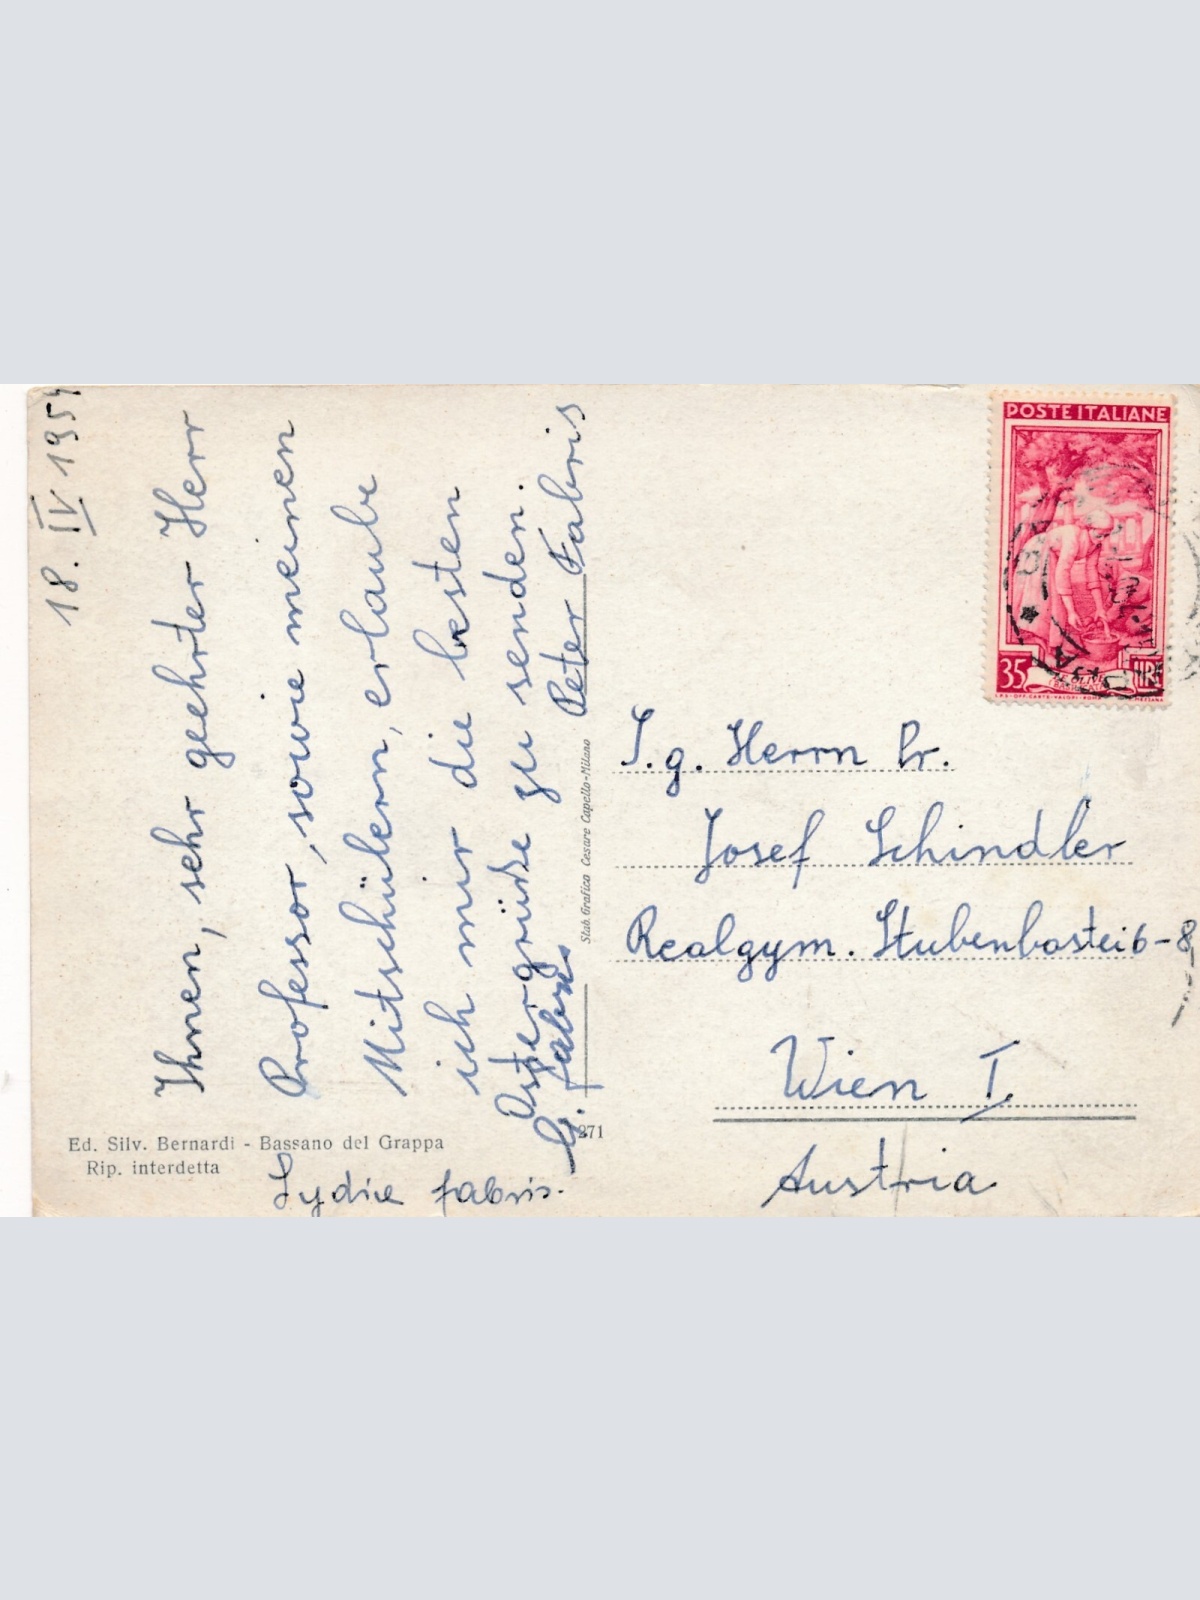 18. IV 1954
Ihnen, sehr geehrter Herr
Professor, sowie meinen
Mitschülern, erlaube
ich mir die besten
Ostergrüße zu senden.
Peter Fabris
G. Fabris
Lydia Fabris.
Ed. Silv. Bernardi - Bassano del Grappa
Rip. interdetta
Stab. Grafico Cesare Capello-Milano
271
POSTE ITALIANE
35 LIRE
S.g. Herrn Pr.
Josef Schindler
Realgym. Stubenbastei 6-8
Wien I.
Austria